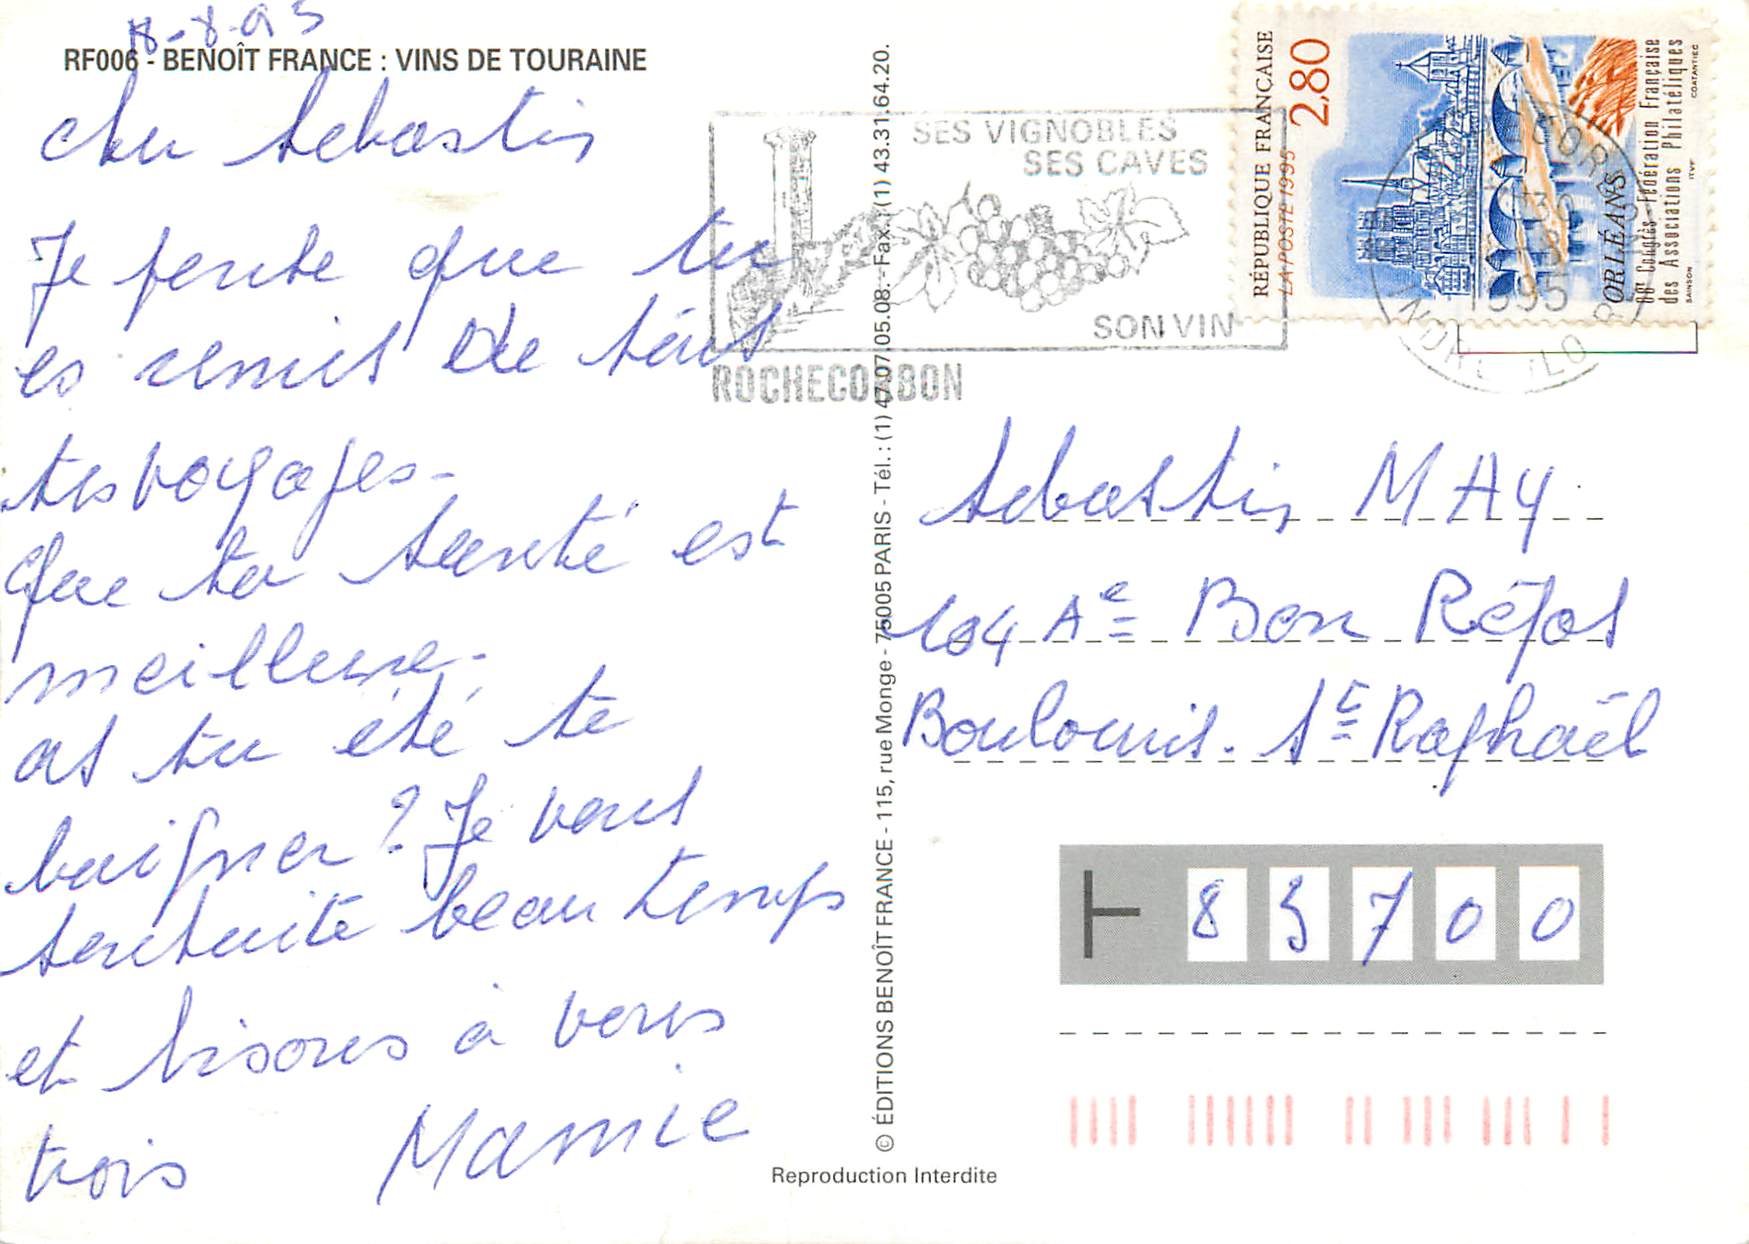 8-8-95
RF006 - BENOÎT FRANCE : VINS DE TOURAINE
cher Sebastien
Je pense que tu
es remis de tous
tes voyages-
que ta santé est
meilleure-
as tu été te
baigner ? Je vous
souhaite beau temps
et bisous à vous
trois Mamie
© ÉDITIONS BENOÎT FRANCE - 115, rue Monge - 75005 PARIS - Tél. : (1) 47.07.05.08. - Fax. : (1) 43.31.64.20.
Reproduction Interdite
SES VIGNOBLES
SES CAVES
SON VIN
ROCHECORBON
RÉPUBLIQUE FRANÇAISE 2,80
LA POSTE 1995
ORLÉANS
68e Congrès Fédération Française
des Associations Philatéliques
SAINSON ITVF COATANTIEC
1995
INDRE
Sebastien MAY
104 Ae Bon Repos
Boulouris. St Raphaël
83700